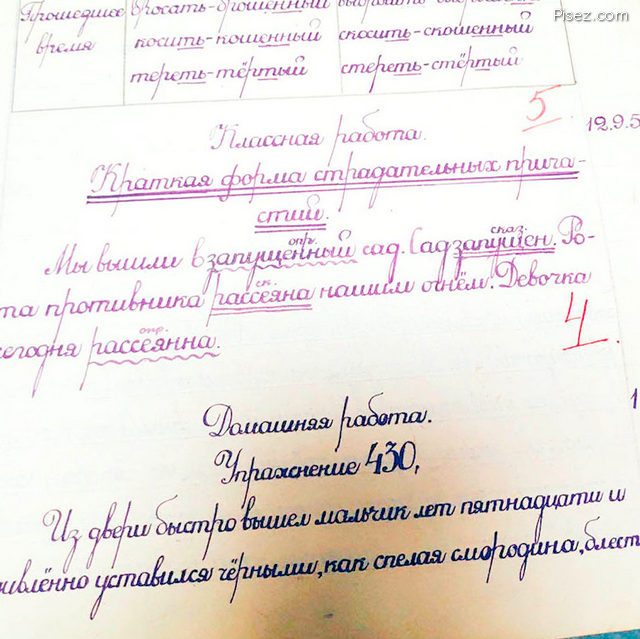 Pisez.com
Прошедшее бросать-брошенный
время косить-кошенный скосить-скошенный
тереть-тёртый стереть-стёртый
5
Классная работа. 12.9.5
Краткая форма страдательных прича-
стий.
опр. сказ.
Мы вышли в запущенный сад. Сад запущен. Ро-
ск.
та противника рассеяна нашим огнём. Девочка
опр.
сегодня рассеянна.
4
Домашняя работа.
Упражнение 430,
Из двери быстро вышел мальчик лет пятнадцати и
ивлённо уставился чёрными, как спелая смородина, блест